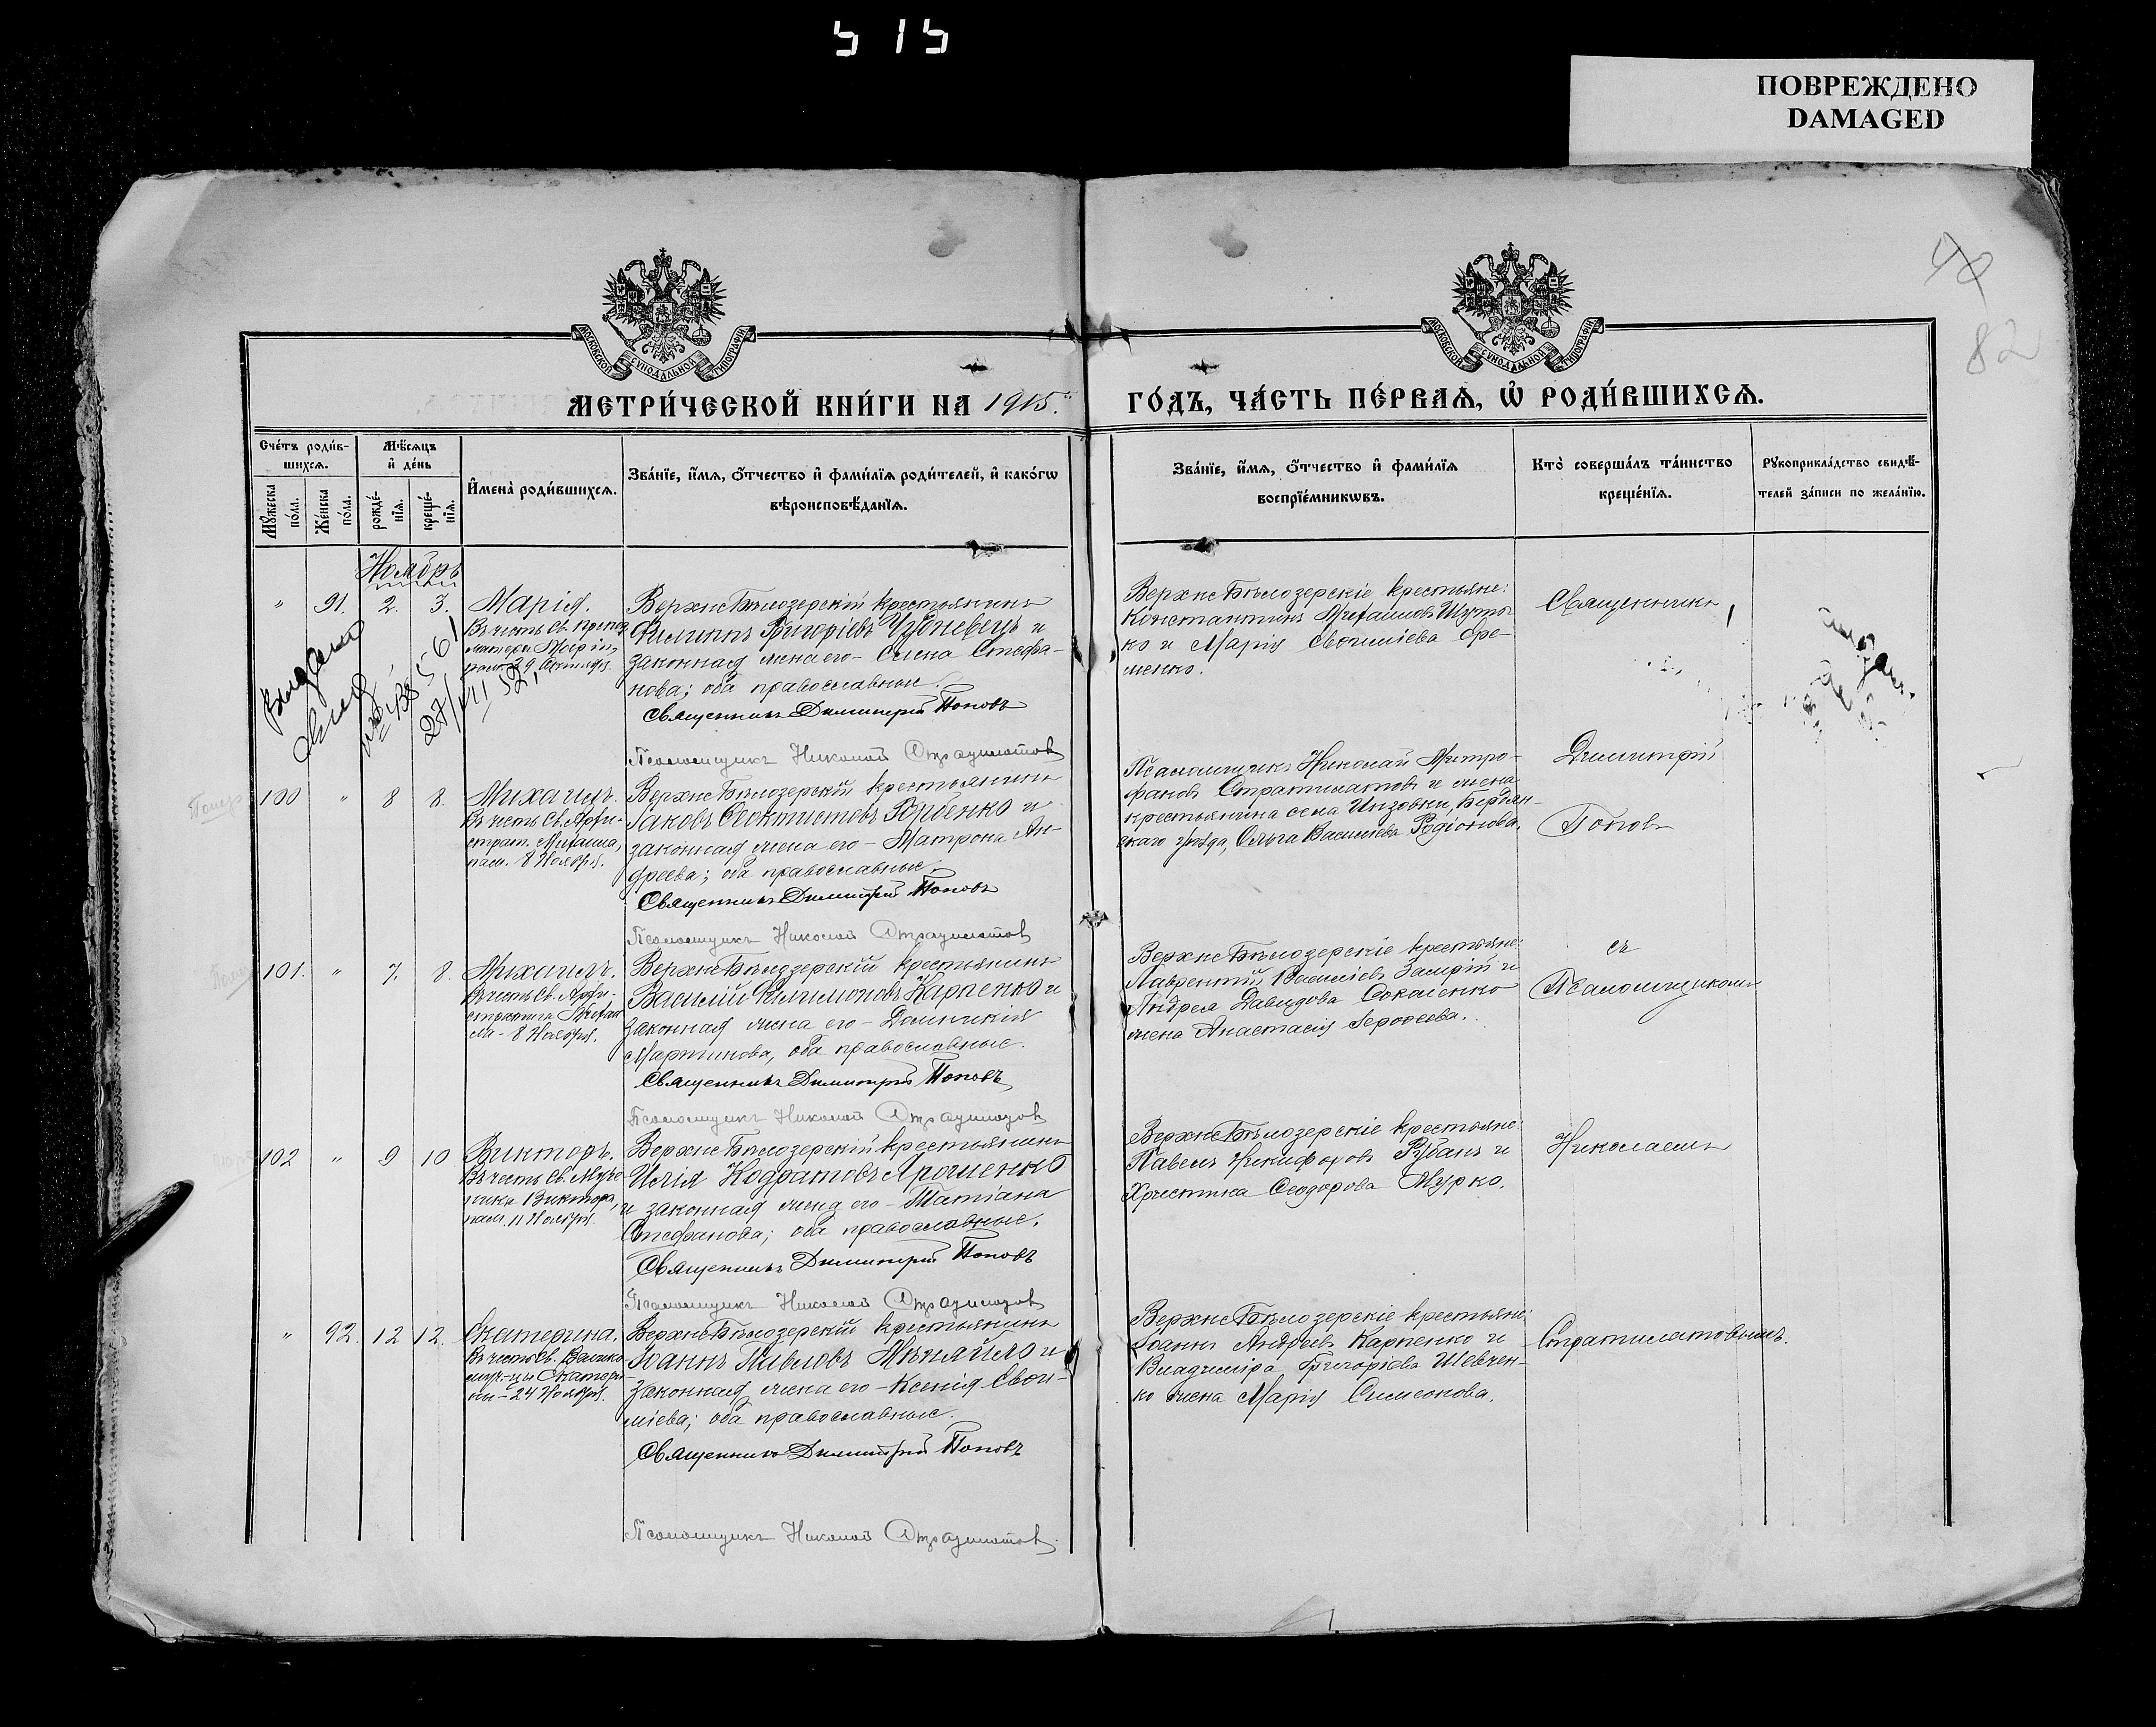 515
ПОВРЕЖДЕНО
DAMAGED
82
МОСКОВСКОЙ СѴНОДАЛЬНОЙ ТИПОГРАФІИ
МОСКОВСКОЙ СѴНОДАЛЬНОЙ ТИПОГРАФІИ
МЕТРИ́ЧЕСКОЙ КНИ́ГИ НА 1915
ГО́ДЪ, ЧА́СТЬ ПЕ́РВАѦ, Ѡ҆ РОДИ́ВШИХСѦ.
Сче́тъ роди́в-
шихсѧ.
Мꙋ́жеска по́ла.
Же́нска по́ла.
Мѣ́сѧцъ
и҆ де́нь
рожде́-
нїѧ.
креще́-
нїѧ.
И҆мена̀ роди́вшихсѧ.
Зва́нїе, и҆́мѧ, ѻ҆́тчество и҆ фами́лїѧ роди́телей, и҆ како́гѡ
вѣроисповѣ́данїѧ.
Зва́нїе, и҆́мѧ, ѻ҆́тчество и҆ фами́лїѧ
воспрїе́мникѡвъ.
Кто̀ соверша́лъ та́инство
креще́нїѧ.
Рꙋкоприкла́дство свидѣ́-
телей за́писи по жела́нїю.
Ноябрь
" 91. 2. 3. Марія.
Въ честь Св. Препод.
Матери Маріи,
пам. 29 Октября.
Верхне Бѣлозерскій крестьянинъ
Филиппъ Григоріевъ и
законная жена его - Елена Стефа-
нова; оба православные.
Священникъ Димитрій Поповъ
Псаломщикъ Николай Стратилатов
Верхне Бѣлозерскіе крестьяне:
Константинъ Михаиловъ Шуть-
ко и Марія Евѳиміева Ере-
менко.
Священникъ
Выдано
27/VII 52
100 " 8 8. Михаилъ.
Въ честь Св. Архи-
страт. Михаила,
пам. 8 Ноября.
Верхне Бѣлозерскій крестьянинъ
Іаковъ Ѳеоктистовъ Горбенко и
законная жена его - Матрона Ан-
дреева; оба православные.
Священникъ Димитрій Поповъ
Псаломщикъ Николай Стратилатов
Псаломщикъ Николай Митро-
фановъ Стратилатовъ и жена
крестьянина села Инзовки, Бердян-
скаго уѣзда, Ольга Василіева Родіонова.
Димитрій
Поповъ
101. " 7. 8. Михаилъ.
Въ честь Св. Архи-
стратига Михаи-
ла - 8 Ноября.
Верхне Бѣлозерскій крестьянинъ
Василій Филимоновъ Карпенко и
законная жена его - Домникия
Мартинова, оба православные.
Священникъ Димитрій Поповъ
Псаломщикъ Николай Стратилатов
Верхне Бѣлозерскіе крестьяне:
Лаврентій Василіевъ и
Андрея Давидова Сокаленко
жена Анастасія Іероѳеева.
съ
Псаломщикомъ
102 " 9 10 Викторъ.
Въ честь Св. Муче-
ника Виктора,
пам. 11 Ноября.
Верхне Бѣлозерскій крестьянинъ
Илія Кодратовъ Ярошенко
и законная жена его - Татіана
Стефанова; оба православные.
Священникъ Димитрій Поповъ
Псаломщикъ Николай Стратилатов
Верхне Бѣлозерскіе крестьяне:
Павелъ Никифоровъ Рубанъ и
Христина Ѳеодорова Мурко.
Николаемъ
" 92. 12 12. Екатерина.
Въ честь Св. Велико-
муч-цы Екатери-
ны - 24 Ноября.
Верхне Бѣлозерскій крестьянинъ
Іоаннъ Павловъ Мѣняйло и
законная жена его - Ксенія Евѳи-
міева; оба православные.
Священникъ Димитрій Поповъ
Псаломщикъ Николай Стратилатов
Верхне Бѣлозерскіе крестьяне:
Іоаннъ Андреевъ Карпенко и
Владиміра Григоріева Шевчен-
ко жена Марія Симеонова.
Стратилатовымъ.